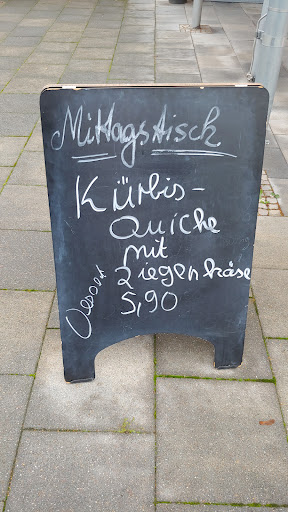 Mittagstisch
Kürbis-
Quiche
mit
Ziegenkäse
5,90